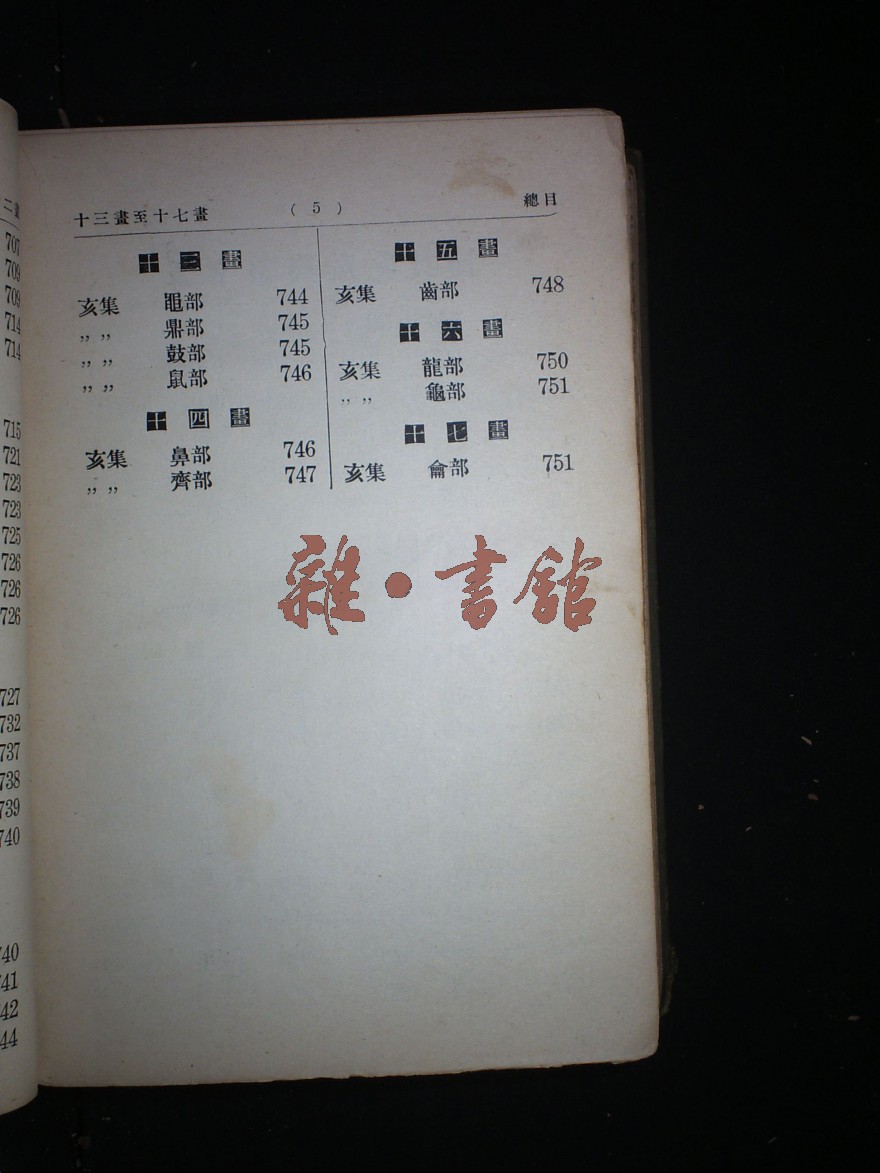 十三畫至十七畫 ( 5 ) 總目
十三畫
亥集 黽部 744
,, ,, 鼎部 745
,, ,, 鼓部 745
,, ,, 鼠部 746
十四畫
亥集 鼻部 746
,, ,, 齊部 747
十五畫
亥集 齒部 748
十六畫
亥集 龍部 750
,, ,, 龜部 751
十七畫
亥集 龠部 751
雜·書館
707
709
709
714
714
715
721
723
723
725
726
726
726
727
732
737
738
739
740
740
741
742
744